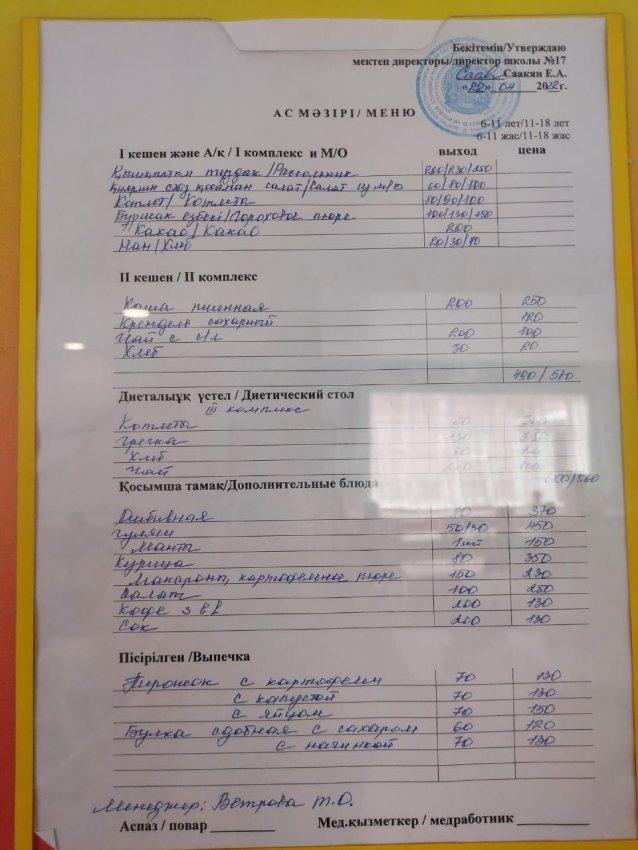 Бекітемін/Утверждаю
мектеп директоры/директор школы №17
Саакян Е.А.
«22» 04 2022г.
АС МӘЗІРІ/ МЕНЮ
6-11 лет/11-18 лет
6-11 жас/11-18 жас
І кешен және А/қ / І комплекс и М/О выход цена
/Рассольник 200/230/250
салат/Салат 60/80/100
Котлет/Котлета 80/90/100
Бұршақ езбесі/Гороховое пюре 100/130/150
Какао/Какао 200
Нан/Хлеб
ІІ кешен / ІІ комплекс
Каша пшенная 200 250
Крендель сахарный 120
Чай с 200 100
Хлеб 30 20
490/560
Диеталыұқ үстел / Диетический стол
ІІІ комплекс
Котлеты
гречка
Хлеб
Чай
Қосымша тамақ/Дополнительные блюда
Отбивная 80 370
гуляш 50/30 450
Манты 1шт 150
Курица 80 350
Макароны, картофельное пюре 150 230
Салаты 100 250
Кофе 3 в 1 200 130
Сок 200 130
Пісірілген /Выпечка
Пирожок с картофелем 70 130
с капустой 70 130
с яйцом 70 150
Булка сдобная с сахаром 60 120
с начинкой 70 130
Менеджер: Ветрова Т.О.
Аспаз / повар Мед.қызметкер / медработник